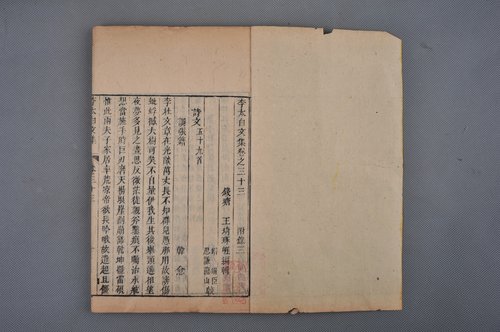 李太白文集卷之三十三 附錄三
錢塘 王琦琢崖編輯
思謙蘊山
詩文五十九首
調張籍 韓愈
李杜文章在光燄萬丈長不知羣兒愚那用故謗傷
蚍蜉撼大樹可笑不自量伊我生其後舉頸遙相望
夜夢多見之晝思反微茫徒觀斧鑿痕不矚治水航
想當施手時巨刃磨天揚垠崖劃崩豁乾坤擺雷硠
惟此兩夫子家居率荒涼帝欲長吟哦故遣起且僵
李太白文集 卷三十三